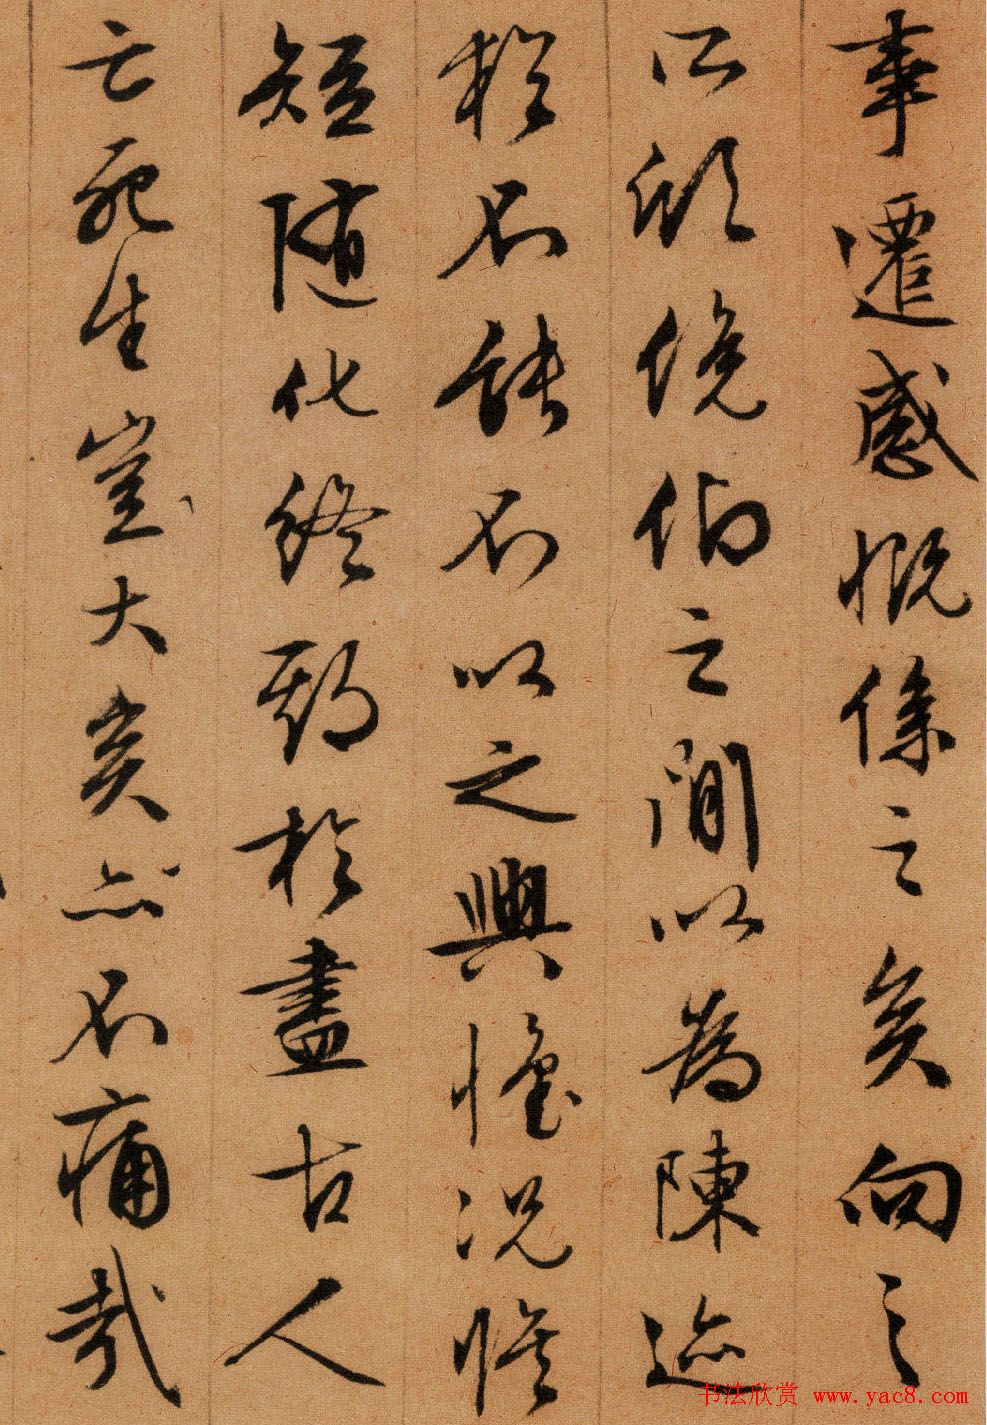 事遷感慨係之矣向之
所欣俛仰之間以為陳迹
於不能不以之興懷況脩
短隨化終期於盡古人
云死生豈大矣亦不痛哉
书法欣赏 www.yac8.com